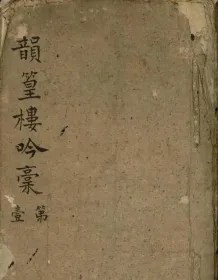 韻篁樓吟稾
第壹